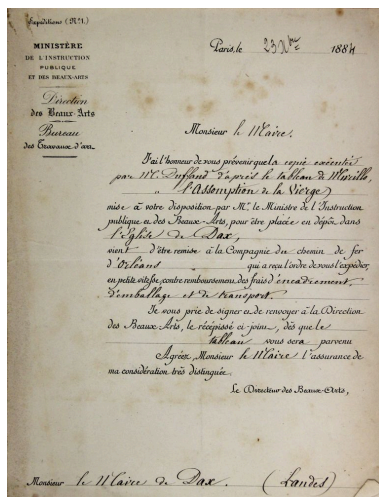 Expéditions (N°1.)
MINISTÈRE
DE L'INSTRUCTION
PUBLIQUE
ET DES BEAUX-ARTS
Direction
des Beaux-Arts
Bureau
des Travaux d'art
Paris, le 23 Xbre 1884
Monsieur le Maire,
J'ai l'honneur de vous prévenir que la copie exécutée
par M. Duffaud d'après le tableau de Murillo,
" l'Assomption de la Vierge)
mise à votre disposition par Mr. le Ministre de l'Instruction
publique et des Beaux-Arts, pour être placée en dépôt dans
l'Eglise de Dax,
vient d'être remise à la Compagnie du chemin de fer
d'Orléans qui a reçu l'ordre de vous l'expédier,
en petite vitesse, contre remboursement des frais d'encadrement
d'emballage et de transport.
Je vous prie de signer et de renvoyer à la Direction
des Beaux-Arts, le récépissé ci-joint, dès que le
tableau vous sera parvenu
Agréez, Monsieur le Maire l'assurance de
ma considération très distinguée.
Le Directeur des Beaux-Arts,
Monsieur le Maire de Dax. (Landes)